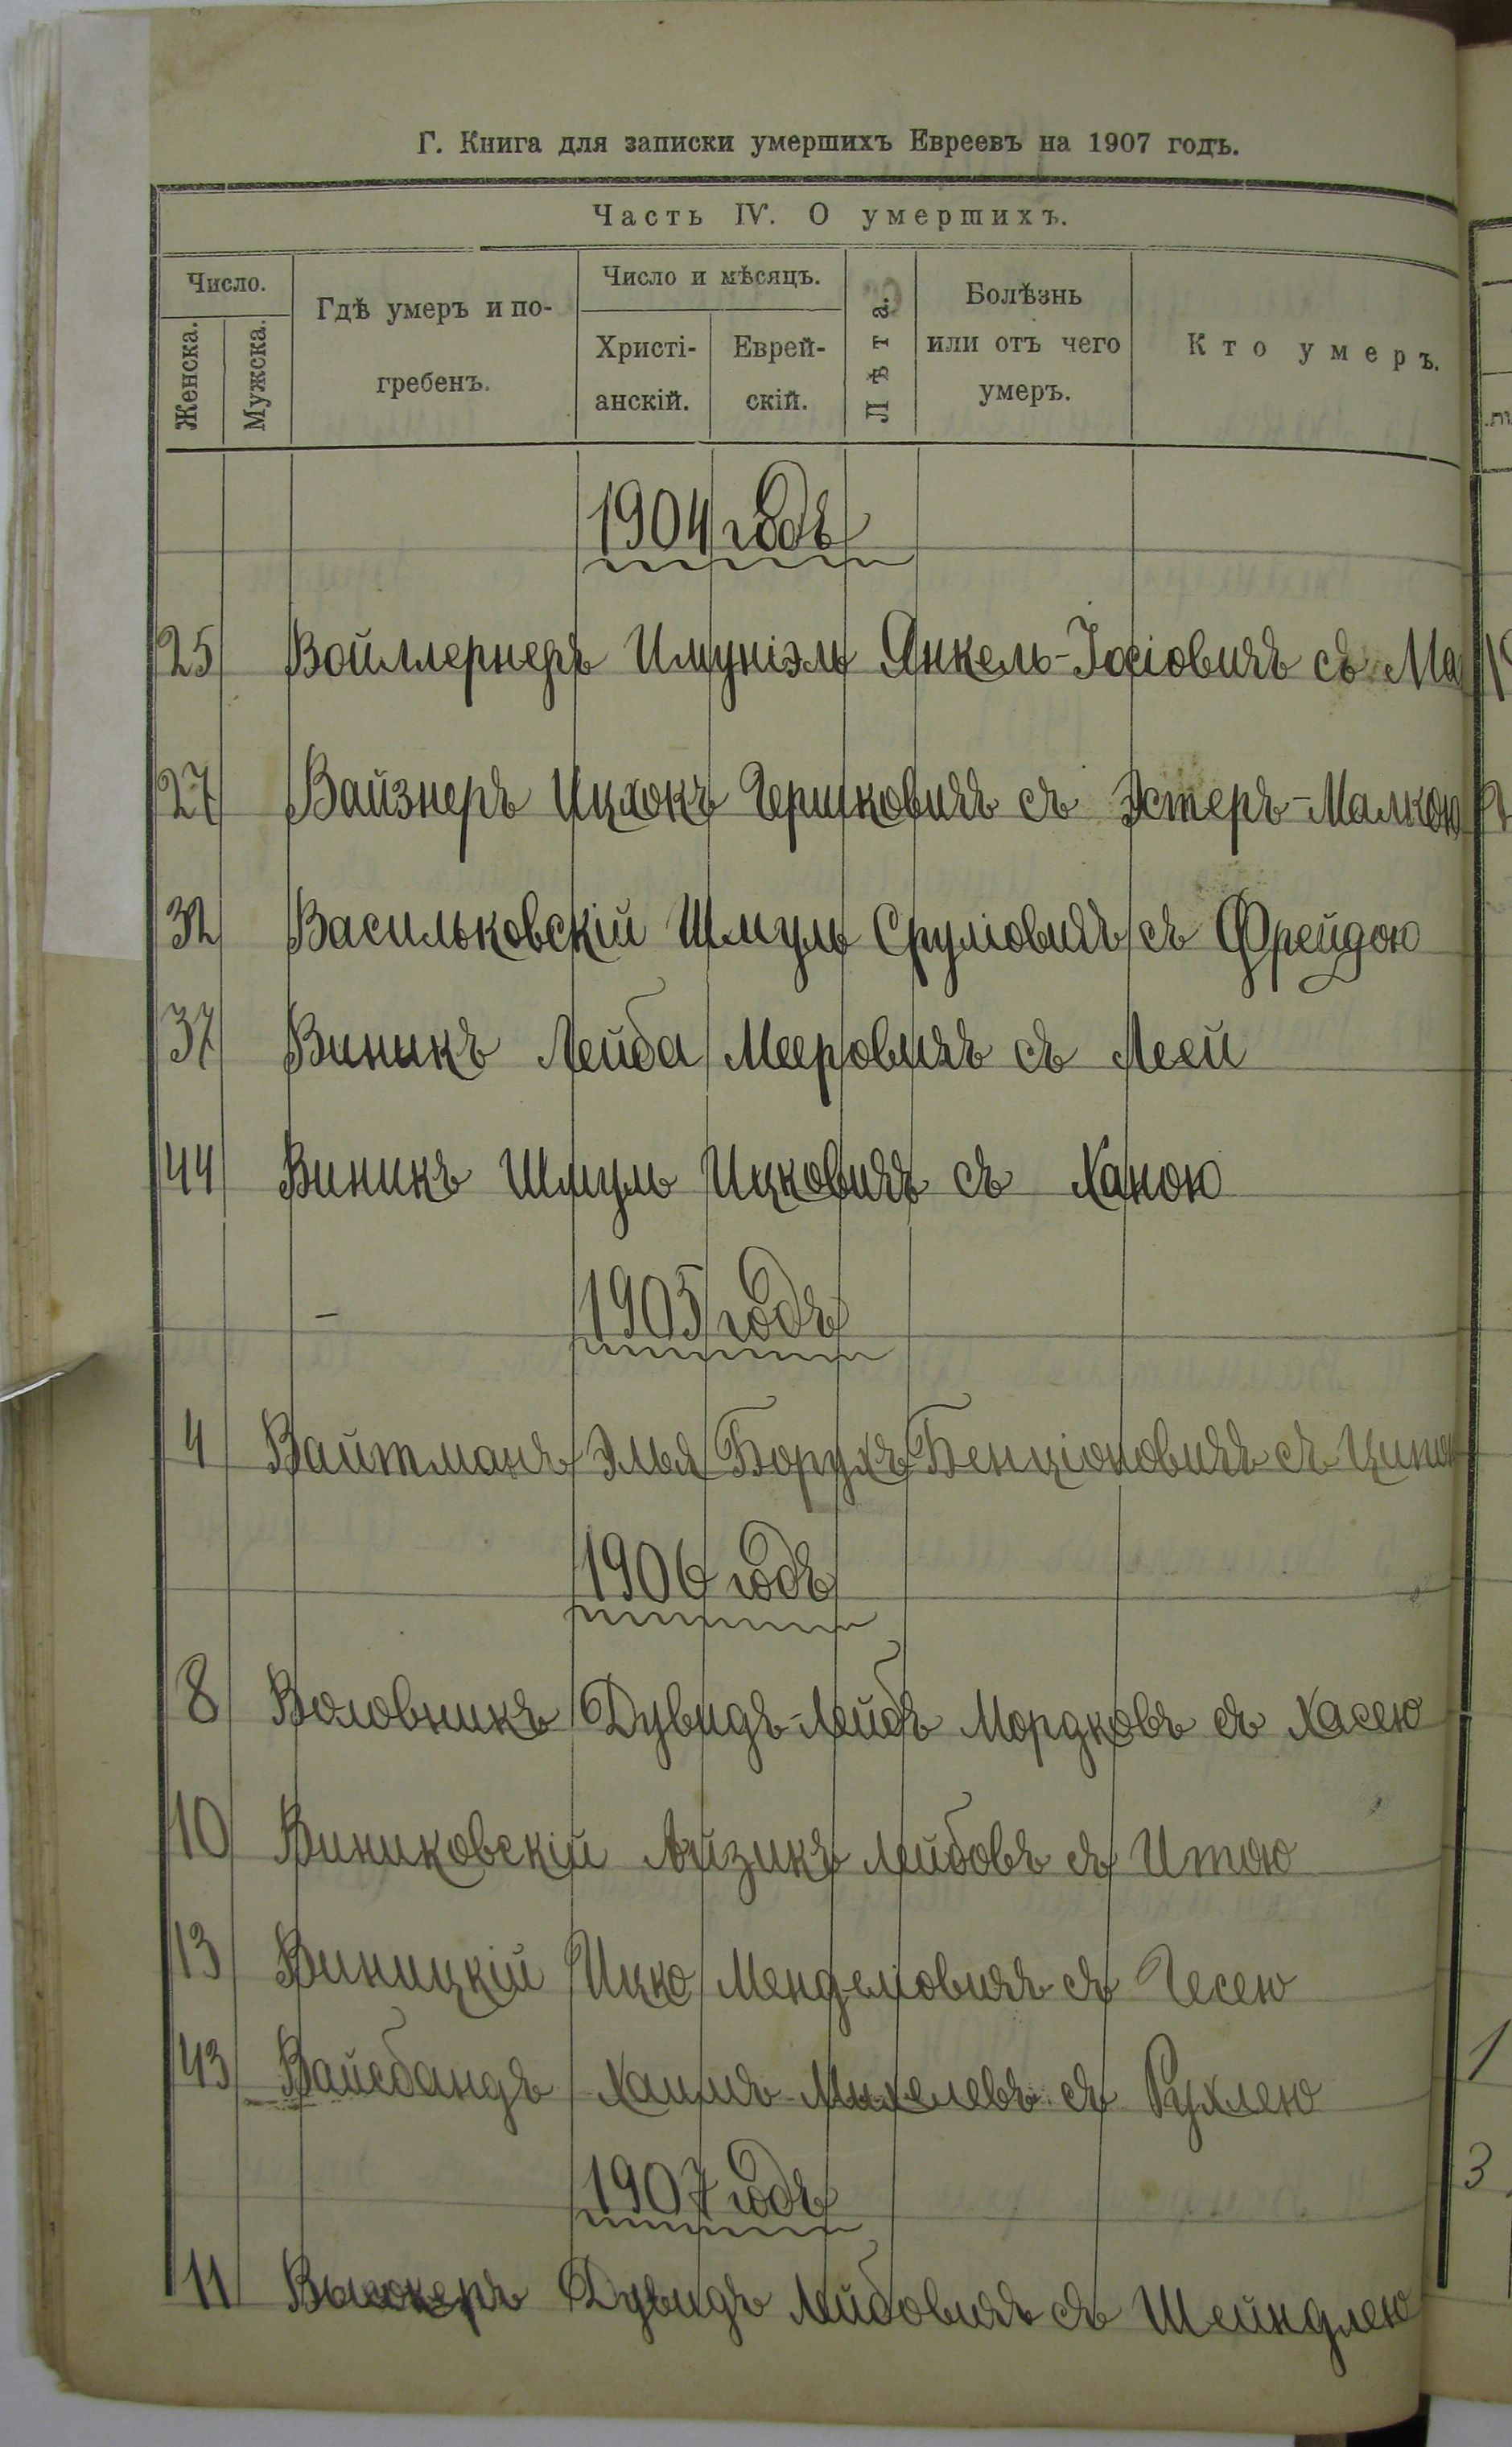 Г. Книга для записки умершихъ Евреевъ на 1907 годъ.
Часть IV. О умершихъ.
Число.
Женска.
Мужска.
Гдѣ умеръ и по-
гребенъ.
Число и мѣсяцъ.
Христі-
анскій.
Еврей-
скій.
Лѣта.
Болѣзнь
или отъ чего
умеръ.
Кто умеръ.
1904 годъ
25 Войллернеръ Имуніэль Янкель-Іосіовичъ съ Ма
27 Вайзнеръ Ицхокъ Гершковичъ съ Эстеръ-Малкою
32 Васильковскій Шмуль Сруліовичъ съ Фрейдою
37 Виникъ Лейба Мееровичъ съ Леей
44 Виникъ Шмуль Ицковичъ съ Ханою
1905 годъ
4 Вайтманъ Элья Борухъ Бенціоновичъ съ Ципою
1906 годъ
8 Воловникъ Дувидъ-Лейбъ Мордковъ съ Хасею
10 Виниковскій Айзикъ Лейбовъ съ Итою
13 Виницкій Ицко Менделіовичъ съ Гесею
43 Вайсбандъ Хаимъ-Михелевъ съ Рухлею
1907 годъ
11 Высокеръ Дувидъ Лейбовичъ съ Шейндлею
1
3